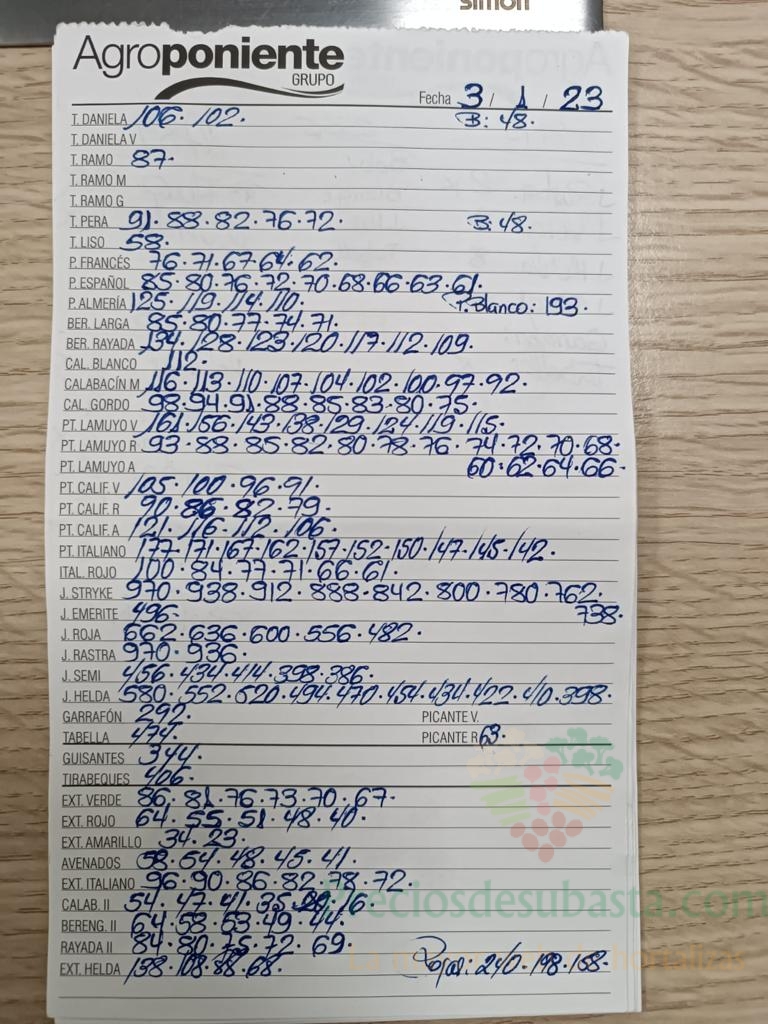 simon
Agroponiente
GRUPO
Fecha 3 / 1 / 23
T. DANIELA 106. 102. B: 48.
T. DANIELA V
T. RAMO 87.
T. RAMO M
T. RAMO G
T. PERA 91. 88. 82. 76. 72. B: 48.
T. LISO 58.
P. FRANCÉS 76. 71. 67. 64. 62.
P. ESPAÑOL 85. 80. 76. 72. 70. 68. 66. 63. 61.
P. ALMERÍA 125. 119. 114. 110. P. Blanco: 193.
BER. LARGA 85. 80. 77. 74. 71.
BER. RAYADA 134. 128. 123. 120. 117. 112. 109.
CAL. BLANCO 112.
CALABACÍN M 116. 113. 110. 107. 104. 102. 100. 97. 92.
CAL. GORDO 98. 94. 91. 88. 85. 83. 80. 75.
PT. LAMUYO V 161. 156. 143. 138. 129. 124. 119. 115.
PT. LAMUYO R 93. 88. 85. 82. 80. 78. 76. 74. 72. 70. 68.
PT. LAMUYO A 60. 62. 64. 66.
PT. CALIF. V 105. 100. 96. 91.
PT. CALIF. R 90. 86. 82. 79.
PT. CALIF. A 121. 116. 112. 106.
PT. ITALIANO 177. 171. 167. 162. 157. 152. 150. 147. 145. 142.
ITAL. ROJO 100. 84. 77. 71. 66. 61.
J. STRYKE 970. 938. 912. 888. 842. 800. 780. 762.
738.
J. EMERITE 496.
J. ROJA 662. 636. 600. 556. 482.
J. RASTRA 970. 936.
J. SEMI 456. 434. 414. 398. 386.
J. HELDA 580. 552. 520. 494. 470. 454. 434. 422. 410. 398.
GARRAFÓN 292. PICANTE V.
TABELLA 474. PICANTE R 63.
GUISANTES 344.
TIRABEQUES 406.
EXT. VERDE 86. 81. 76. 73. 70. 67.
EXT. ROJO 64. 55. 51. 48. 40.
EXT. AMARILLO 34. 23.
AVENADOS 58. 54. 48. 45. 41.
EXT. ITALIANO 96. 90. 86. 82. 78. 72.
CALAB. II 54. 47. 41. 35. 16.
Preciosdesubasta.com
BERENG. II 64. 58. 53. 49. 44.
RAYADA II 84. 80. 75. 72. 69.
EXT. HELDA 138. 108. 88. 68. Rojas: 240. 198. 158.